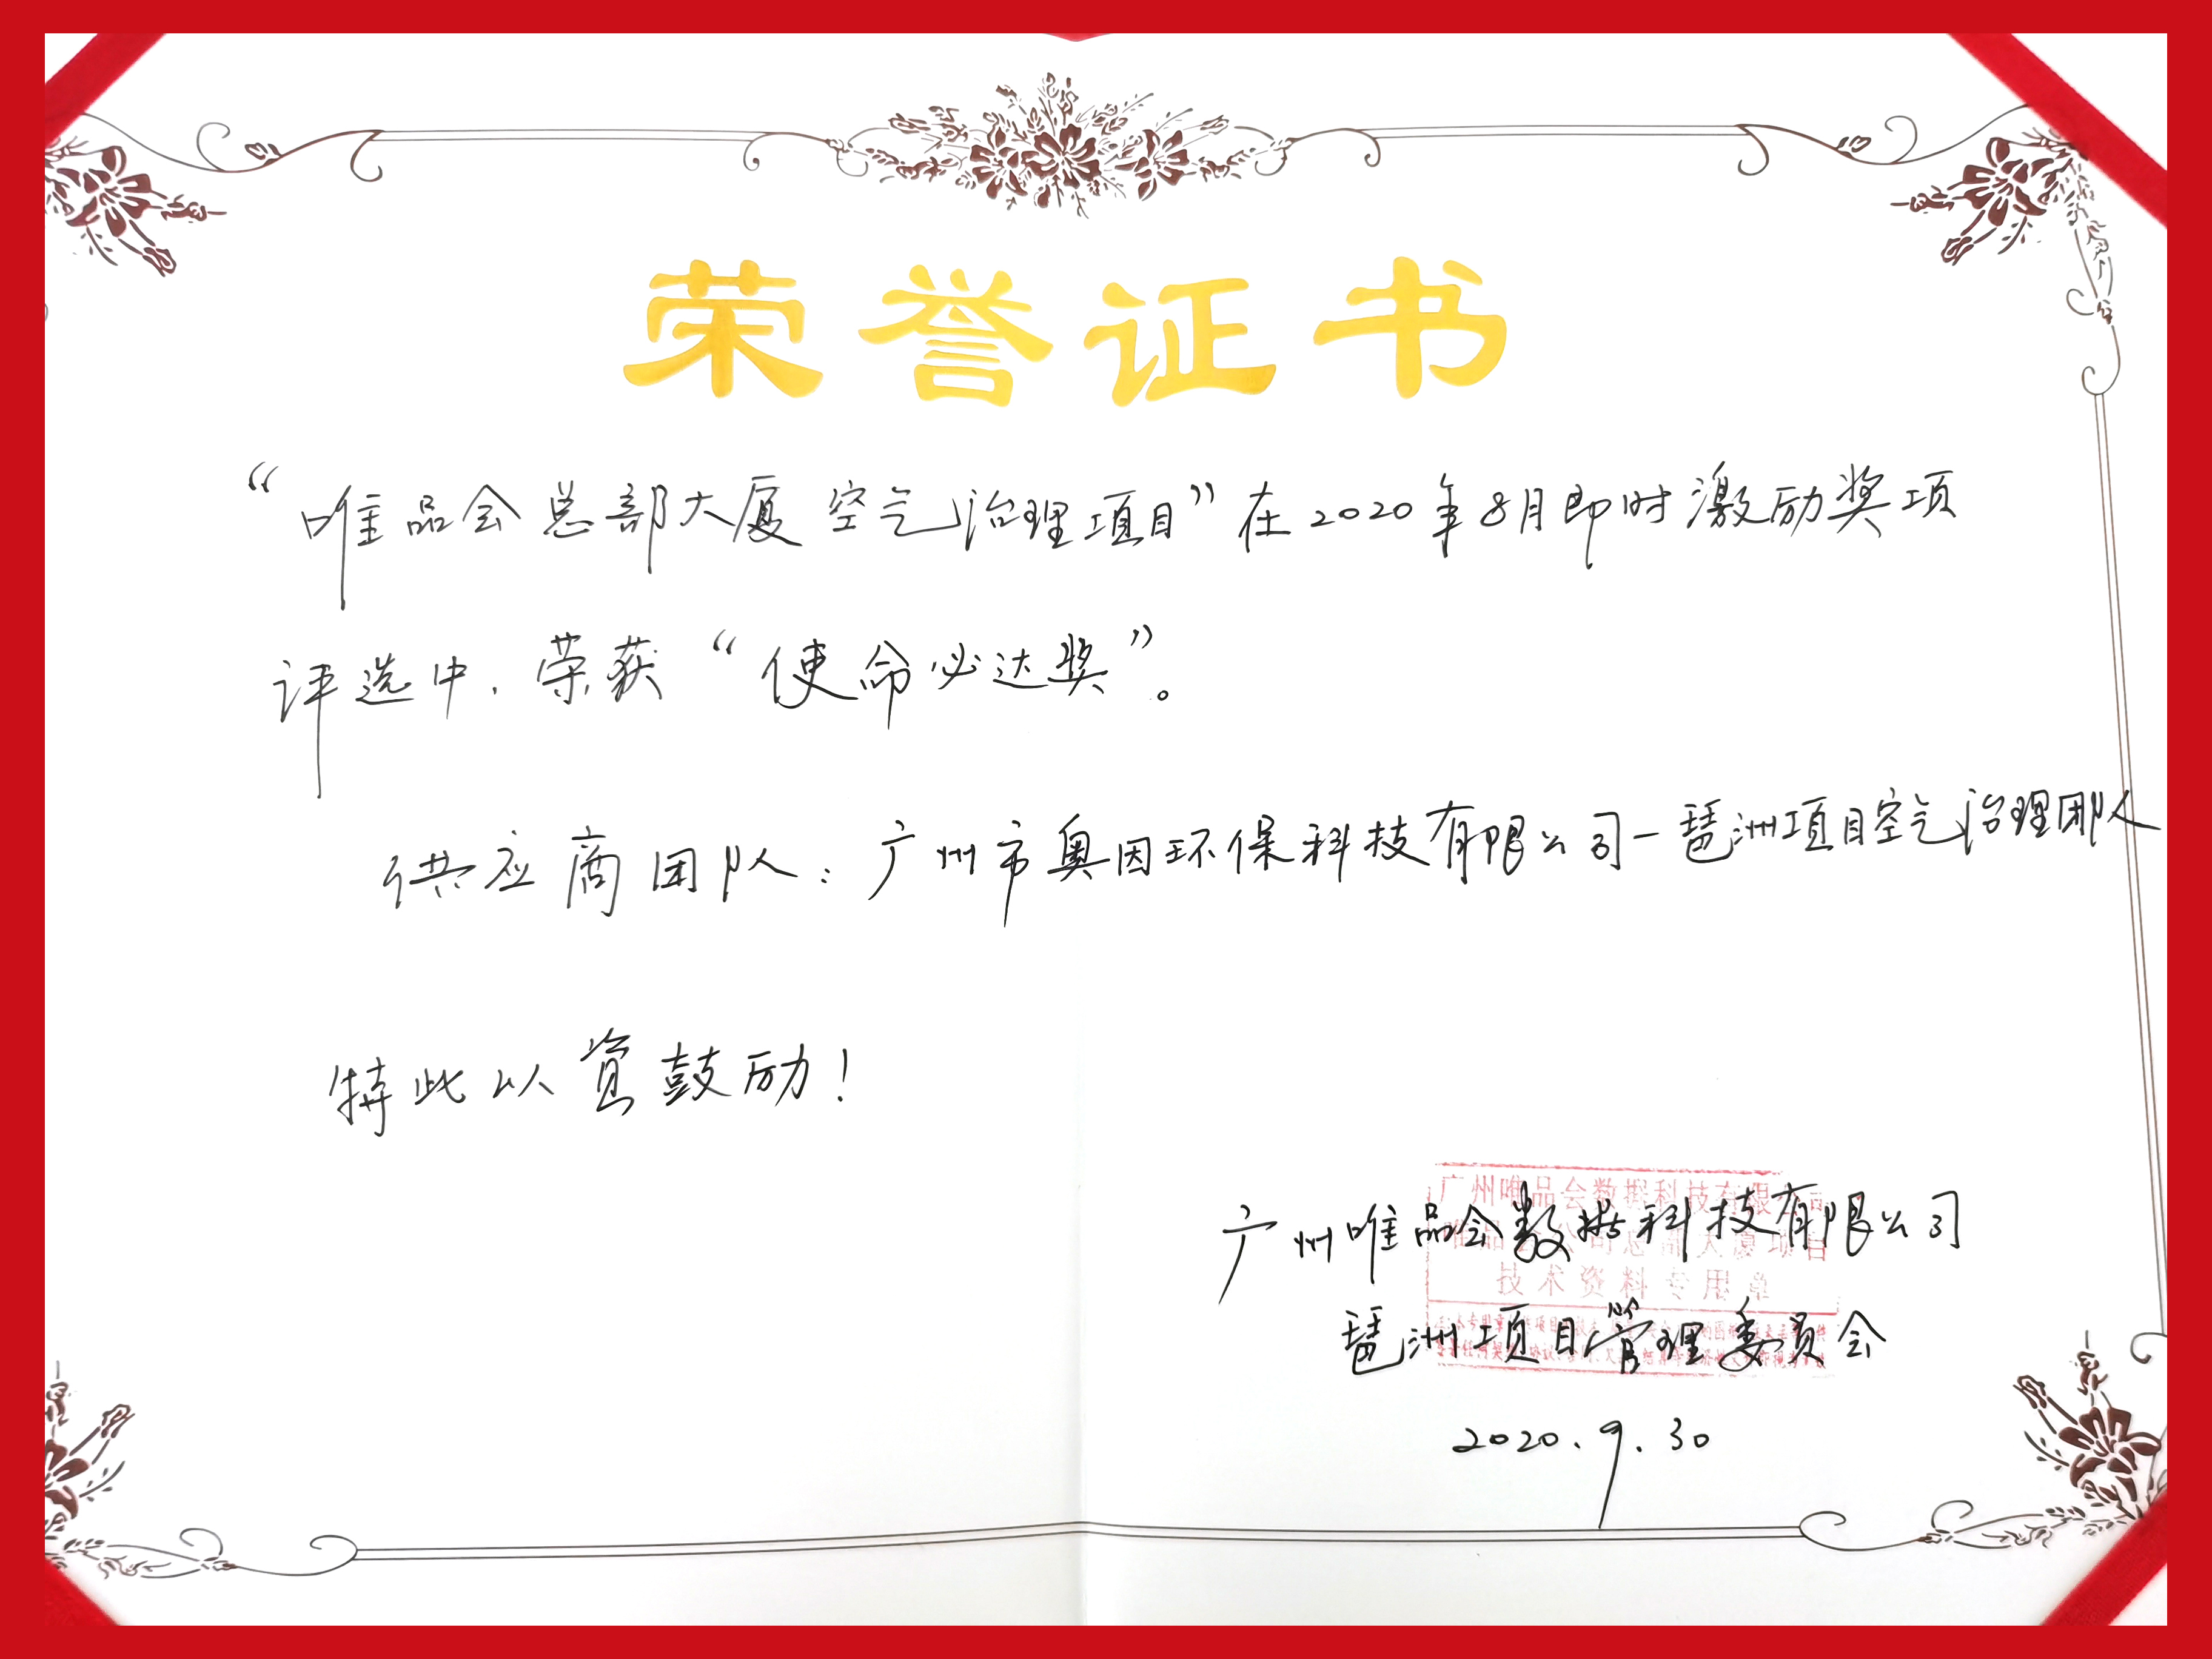 荣誉证书
“唯品会总部大厦空气治理项目”在2020年8月即时激励奖项
评选中,荣获“使命必达奖”。
供应商团队:广州市奥因环保科技有限公司-琶洲项目空气治理团队
特此以资鼓励!
广州唯品会数据科技有限公司
广州唯品会数据科技有限公司
技术资料专用章
琶洲项目管理委员会
2020.9.30